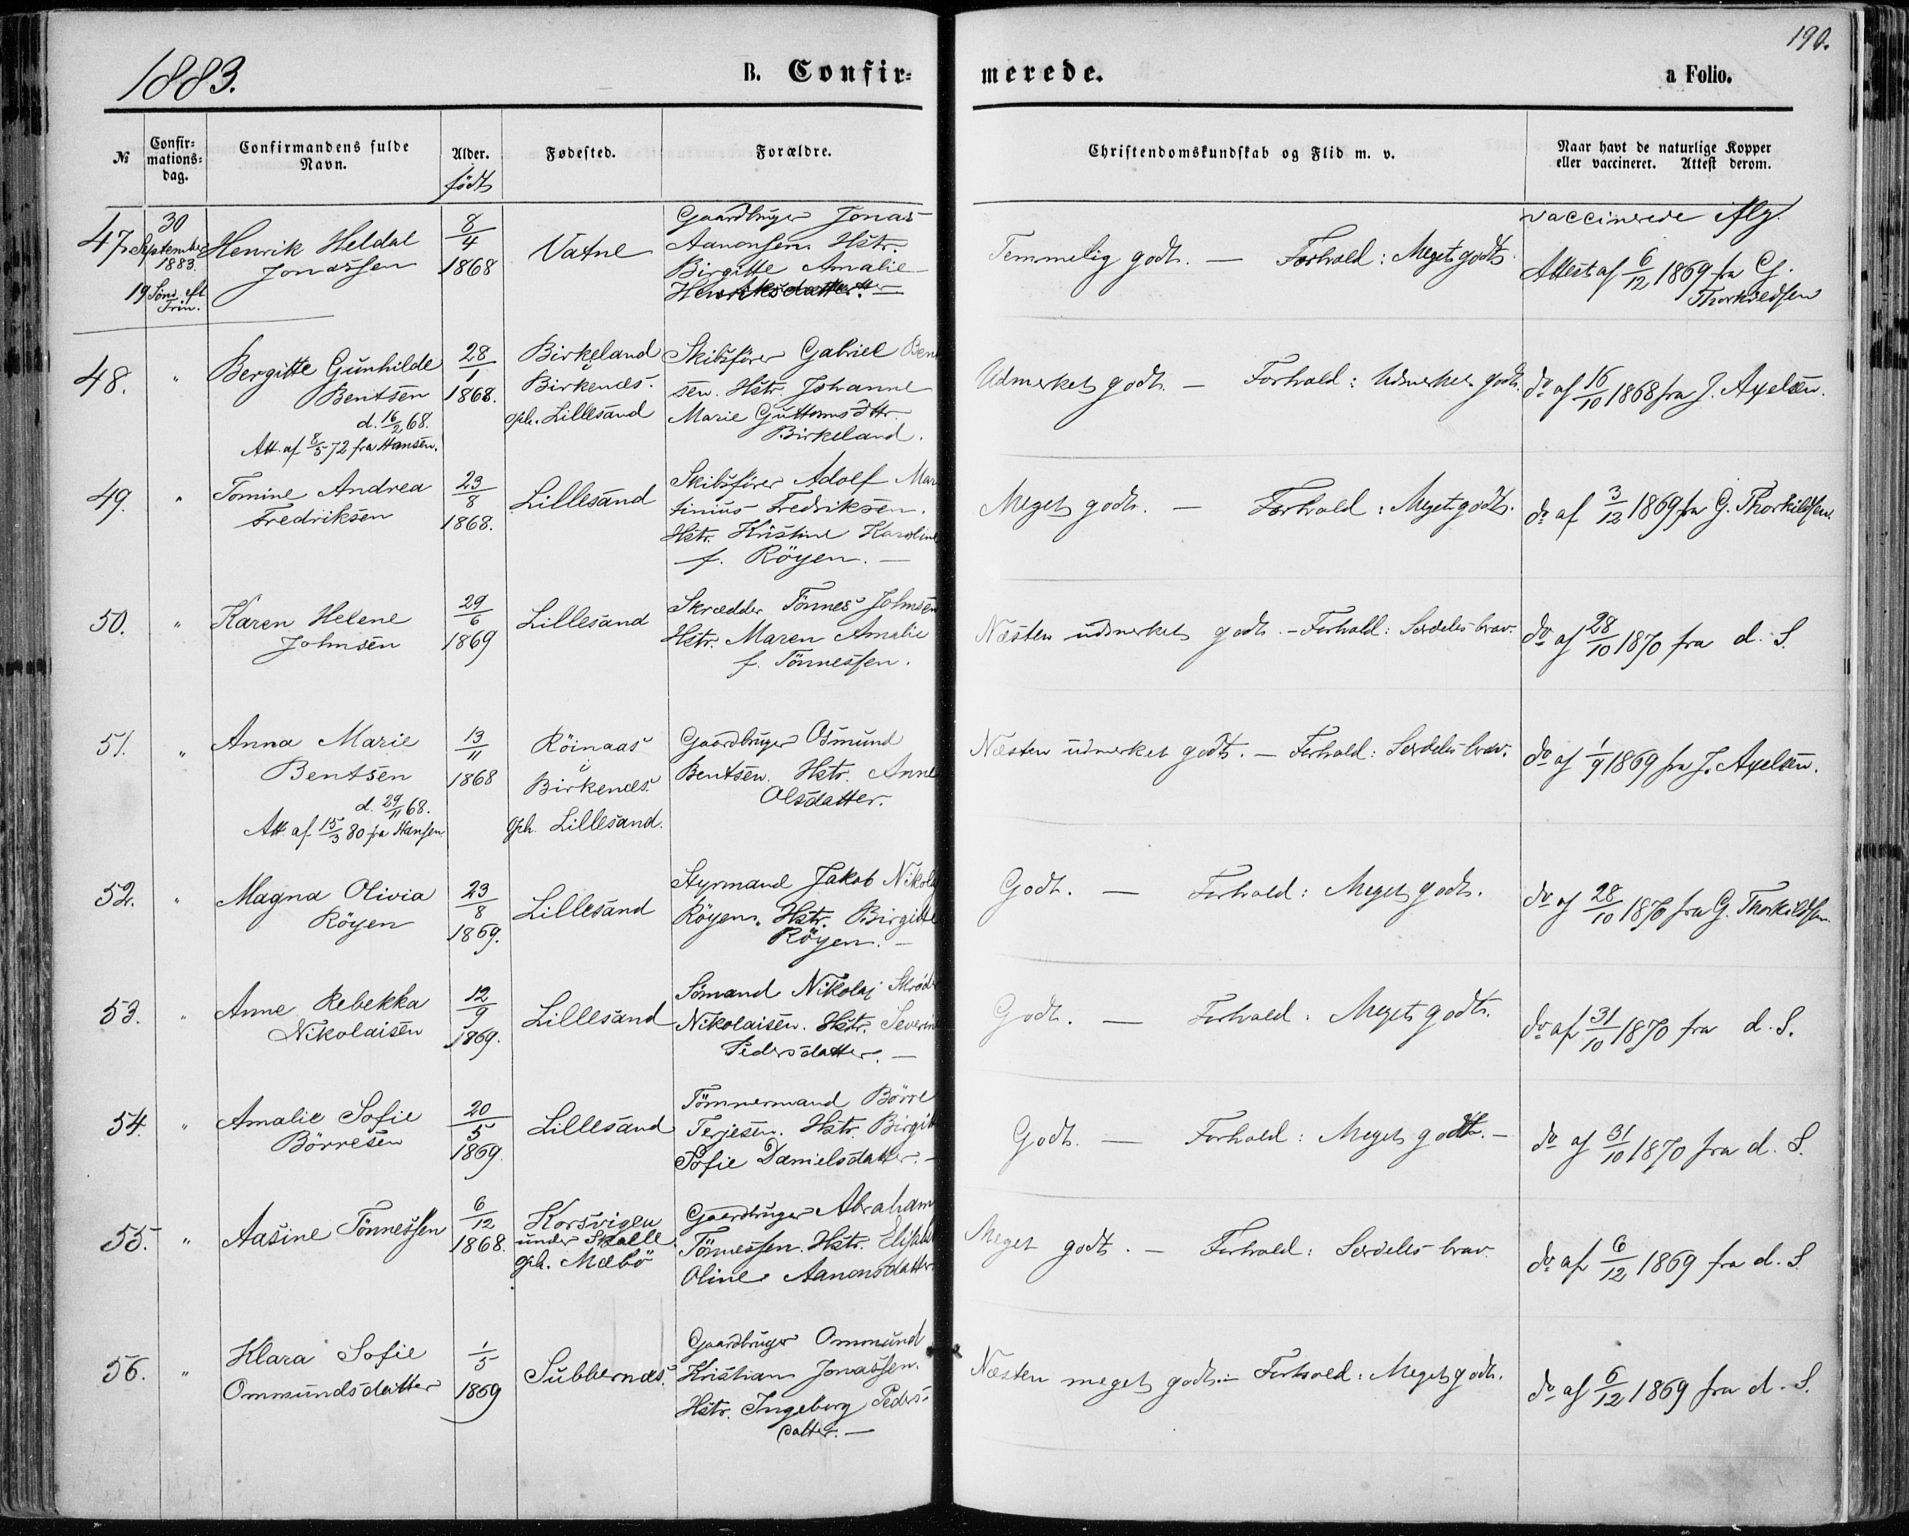 190.
1883. B. Confir= merede. a Folio.
№ Confir=mations=dag. Confirmandens fulde Navn. Alder. født Fødested. Forældre. Christendomskundskab og Flid m. v. Naar havt de naturlige Kopper eller vaccineret. Attest derom.
47. 30 September 1883. 19 Sønd. eft. Trin.
Henrik Heldal
Jonassen
8/4 1868
Vatne
Gaardbruger Jonas
Aanonsen Hstr.
Birgitte Amalie
Henriksdatter. —
Temmelig godt. — Forhold: Meget godt.
vaccinerede Flg.
Attest af 6/12 1869 fra G.
Thorkildsen
48. "
Bergitte Gunhilde
Bentsen
d. 16/2 68.
Att. af 8/5 72 fra Hansen.
28/1 1868.
Birkeland
i
Birkenes.
gph. Lillesand
Skibsfører Gabriel Bent
sen. Hstr. Johanne
Marie Guttormsdttr.
Birkeland.
Udmerket godt. — Forhold: Udmerket godt.
do af 16/10 1868 fra J. Axelsen.
49. "
Tomine Andrea
Fredriksen
23/8 1868.
Lillesand
Skibsfører Adolf Mar
tinius Fredriksen.
Hstr. Kristine Karoline
f. Röyen. —
Meget godt. — Forhold: Meget godt.
do af 3/12 1869 fra G. Thorkildsen.
50. "
Karen Helene
Johnsen
29/6 1869
Lillesand
Skrædder Tönnes Johnsen
Hstr. Maren Amalie
f. Tönnessen.
Næsten udmerket godt. — Forhold: Særdeles brav.
do af 28/10 1870 fra d. S.
51. "
Anna Marie
Bentsen
d. 29/11 68.
Att. af 15/3 80 fra Hansen
13/11 1868
Röinaas
i
Birkenes.
gph. Lillesand.
Gaardbruger Osmund
Bentsen. Hstr. Anne
Olsdatter.
Næsten udmerket godt. — Forhold: Særdeles brav.
do af 1/9 1869 fra J. Axelsen.
52. "
Magna Olivia
Röyen
23/8 1869.
Lillesand
Styrmand Jakob Nikolai
Röyen. Hstr. Birgitte
Röyen. —
Godt. — Forhold: Meget godt.
do af 28/10 1870 fra G. Thorkildsen
53. "
Anne Rebekka
Nikolaisen
12/9 1869.
Lillesand
Sömand Nikolaj
Nikolaisen. Hstr. Severine
Pedersdatter. —
Godt. — Forhold: Meget godt.
do af 31/10 1870 fra d. S.
54. "
Amalie Sofie
Börresen
20/5 1869.
Lillesand
Tömmermand Börre
Terjesen. Hstr. Birgitte
Sofie Danielsdatter. —
Godt. — Forhold: Meget godt. —
do af 31/10 1870 fra d. S.
55. "
Aasine Tönnessen
6/12 1868.
Korsvigen
under Skalle
gph. Mæbö
Gaardbruger Abraham
Tönnessen. Hstr. Elisabet
Oline Aanonsdatter.
Meget godt. — Forhold: Særdeles brav.
do af 6/12 1869 fra d. S.
56. "
Klara Sofie
Ommundsdatter
1/5 1869
Subbernæs.
Gaardbruger Ommund
Kristian Jonassen.
Hstr. Ingeborg Peders-
datter. —
Næsten meget godt. — Forhold: Meget godt.
do af 6/12 1869 fra d. S.